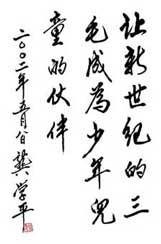 让新世纪的三
毛成为少年儿
童的伙伴
二〇〇二年五月八日 龚学平